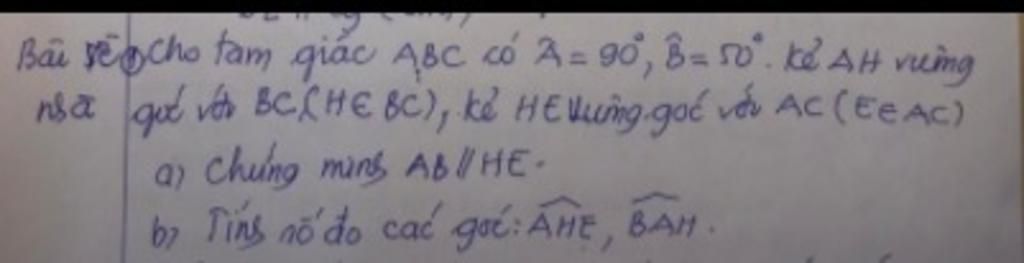 Bài về Cho tam giác ABC có Â = 90°, B̂ = 50°. Kẻ AH vuông
nhà góc với BC (H ∈ BC), kẻ HE vuông góc với AC (E ∈ AC)
a) Chứng minh AB // HE.
b) Tính số đo các góc: AHE, BAH.